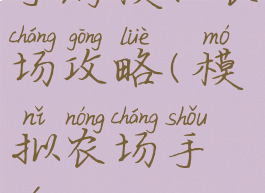 cháng gōng lüè mó
场攻略(模
nǐ nóng cháng shǒu
拟农场手